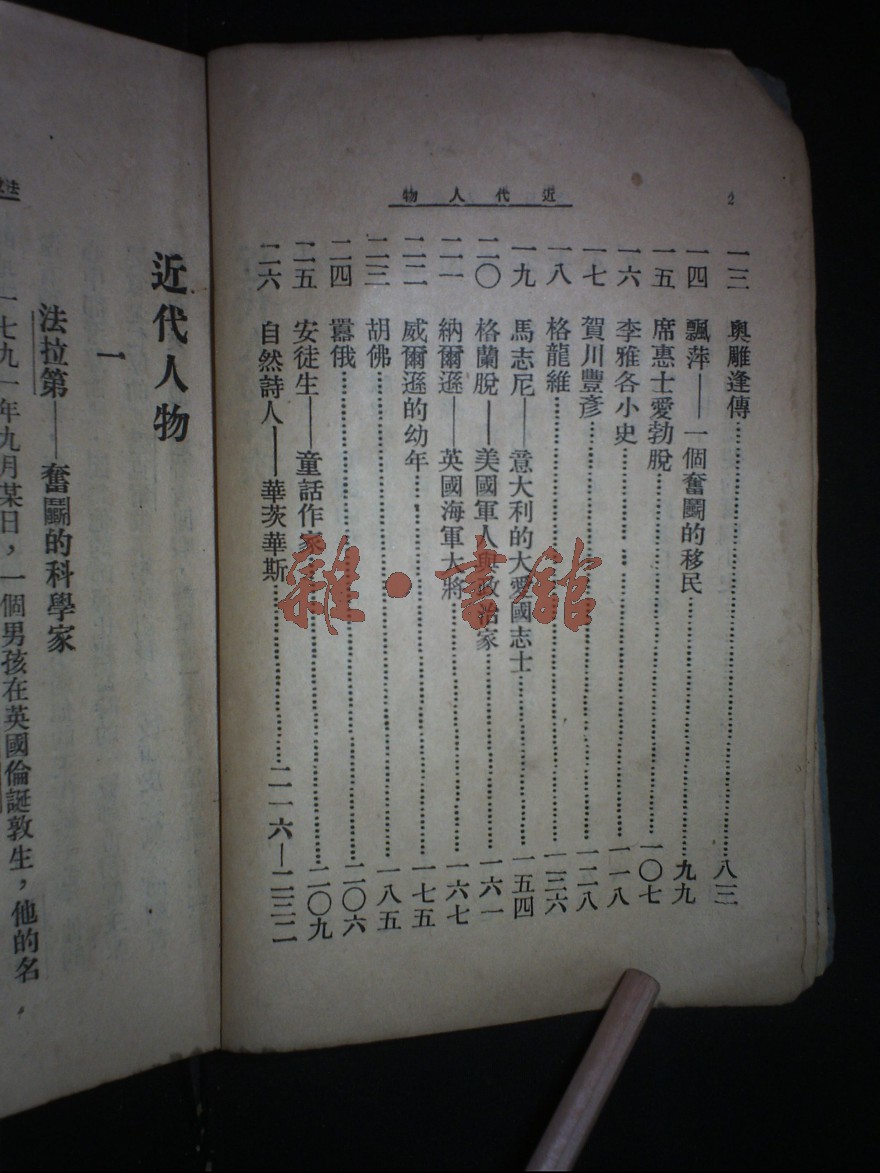 2
近代人物
一三 奧雕逢傳……八三
一四 飄萍——一個奮鬭的移民……九九
一五 席惠士愛勃脫……一〇七
一六 李雅各小史……一一八
一七 賀川豐彥……一二八
一八 格龍維……一三六
一九 馬志尼——意大利的大愛國志士……一五四
二〇 格蘭脫——美國軍人與政治家……一六一
二一 納爾遜——英國海軍大將……一六七
二二 威爾遜的幼年……一七五
二三 胡佛……一八五
二四 囂俄……二〇六
二五 安徒生——童話作家……二〇九
二六 自然詩人——華茨華斯……二一六—二三二
雜·書館
近代人物
一
法拉第——奮鬭的科學家
一七九一年九月某日，一個男孩在英國倫誕敦生，他的名